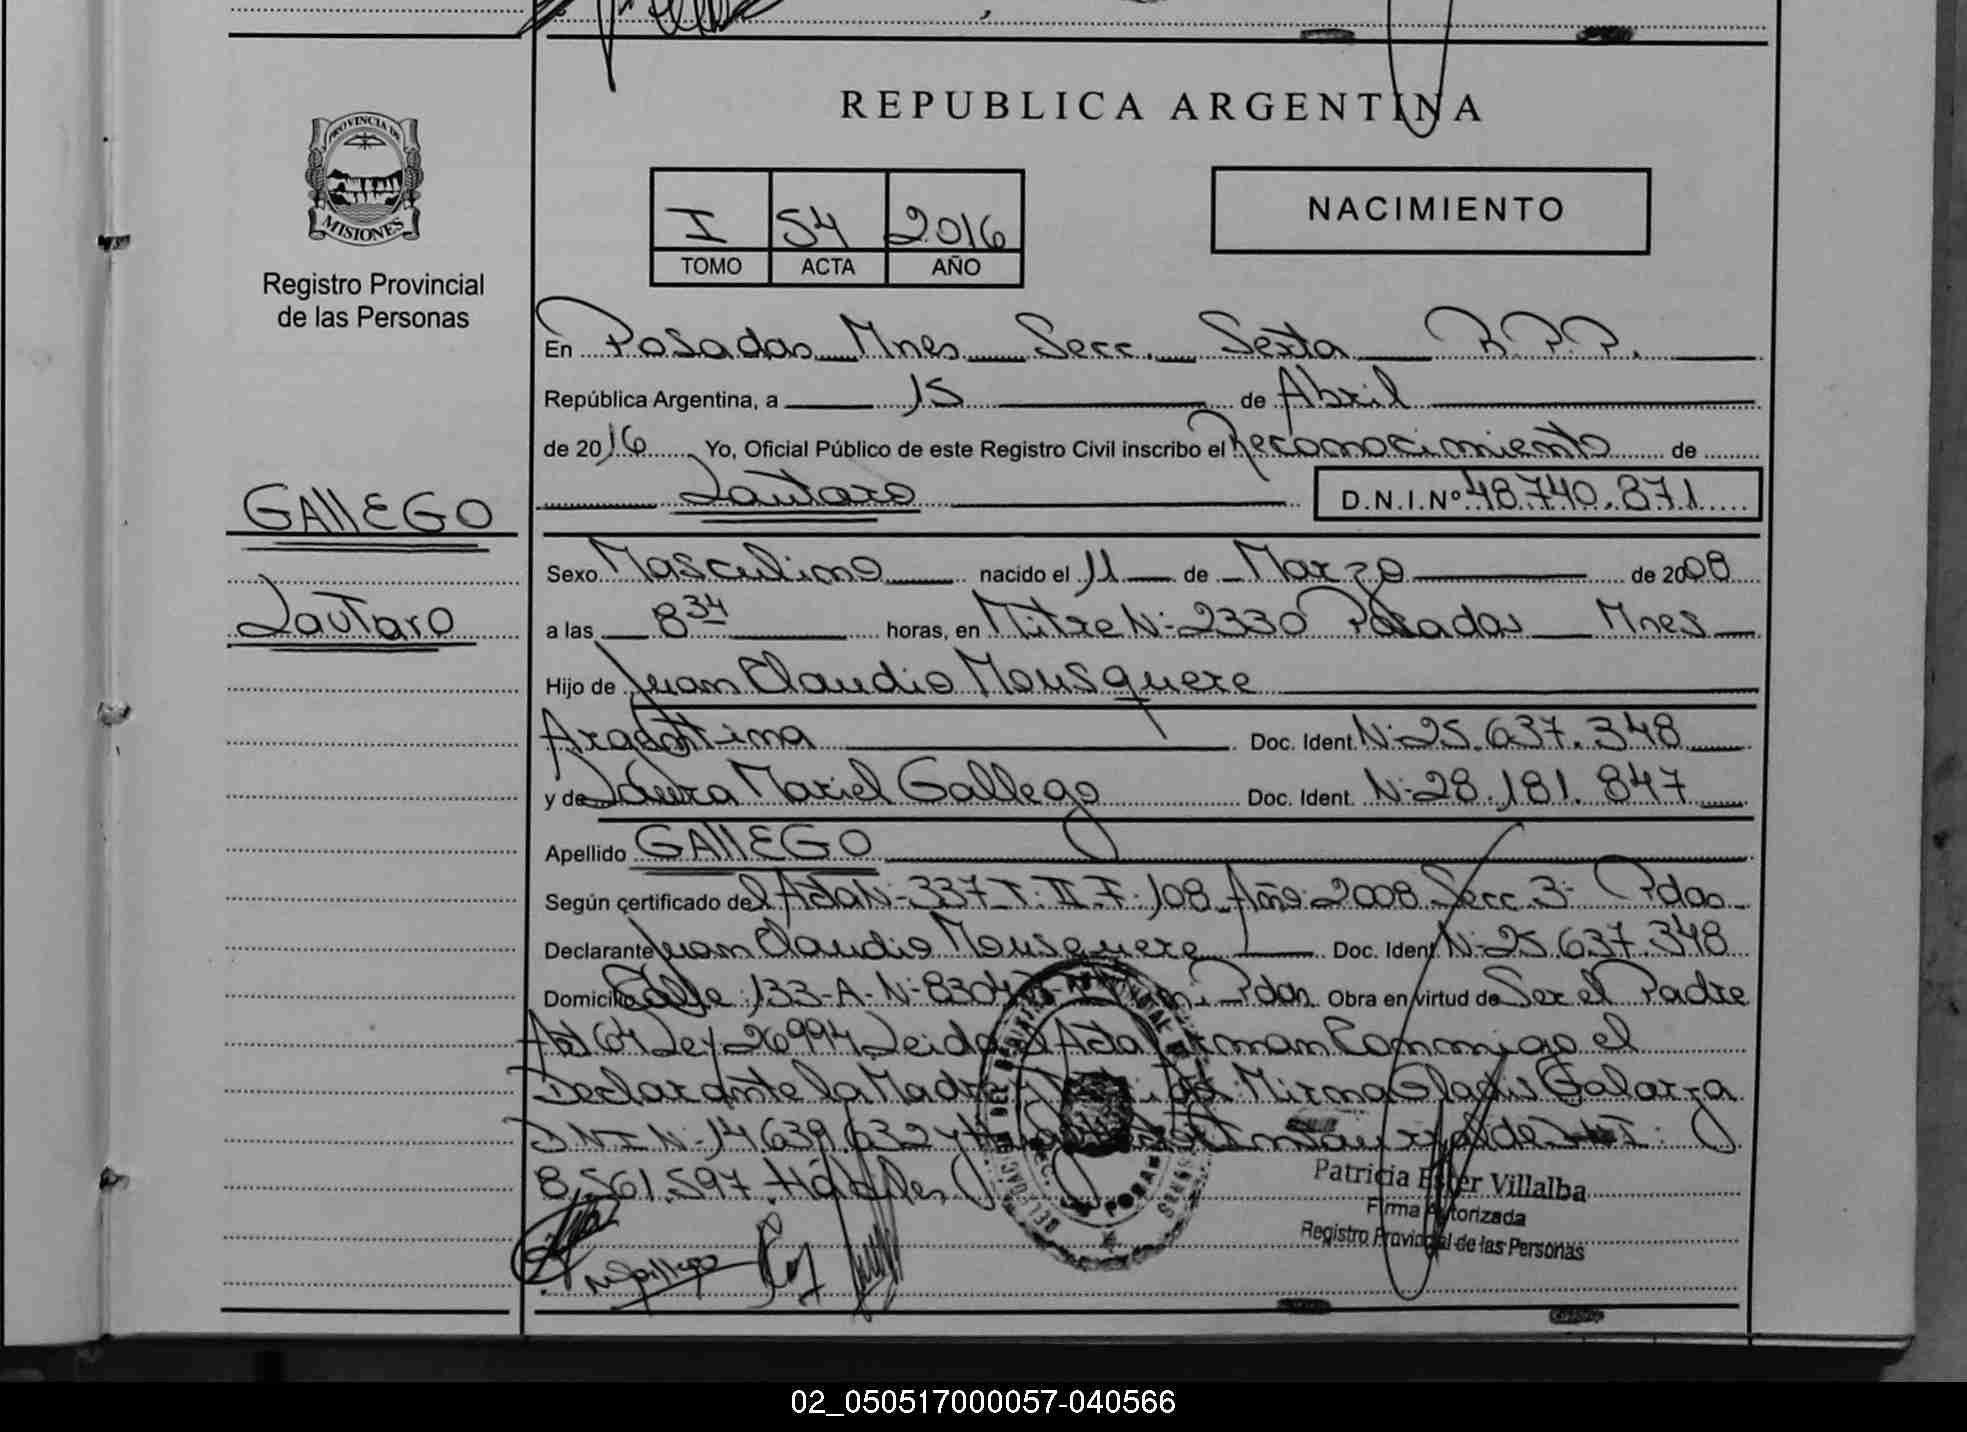 REPUBLICA ARGENTINA
PROVINCIA DE
MISIONES
Registro Provincial
de las Personas
I 54 2016
TOMO ACTA AÑO
NACIMIENTO
En Posadas Mnes Secc. Sexta R.P.P.
República Argentina, a 15 de Abril
de 2016 Yo, Oficial Público de este Registro Civil inscribo el Reconocimiento de
Lautaro D.N.I.Nº 48.740.871
GALLEGO
Lautaro
Sexo Masculino nacido el 11 de Marzo de 2008
a las 8 34 horas, en Mitre N: 2330 Posadas Mnes
Hijo de Juan Claudio Mousquere
Argentina Doc. Ident. N: 25.637.348
y de Laura Mariel Gallego Doc. Ident. N: 28.181.847
Apellido GALLEGO
Según certificado del Acta N: 337 T: II F: 108 Año: 2008 Secc. 3: Pdas
Declarante Juan Claudio Mousquere Doc. Ident N: 25.637.348
Domicilio Calle: 133-A-N- Pdas Obra en virtud de Ser el Padre
Art 64 Ley 26994 Leida el Acta Firman Conmigo el
Declarante la Madre Mirna Gladis Galarza
D.N.I.N: 14.639.632 y de
8.561.597 Hábiles
Patricia Ester Villalba
Firma Autorizada
Registro Provincial de las Personas
02_050517000057-040566